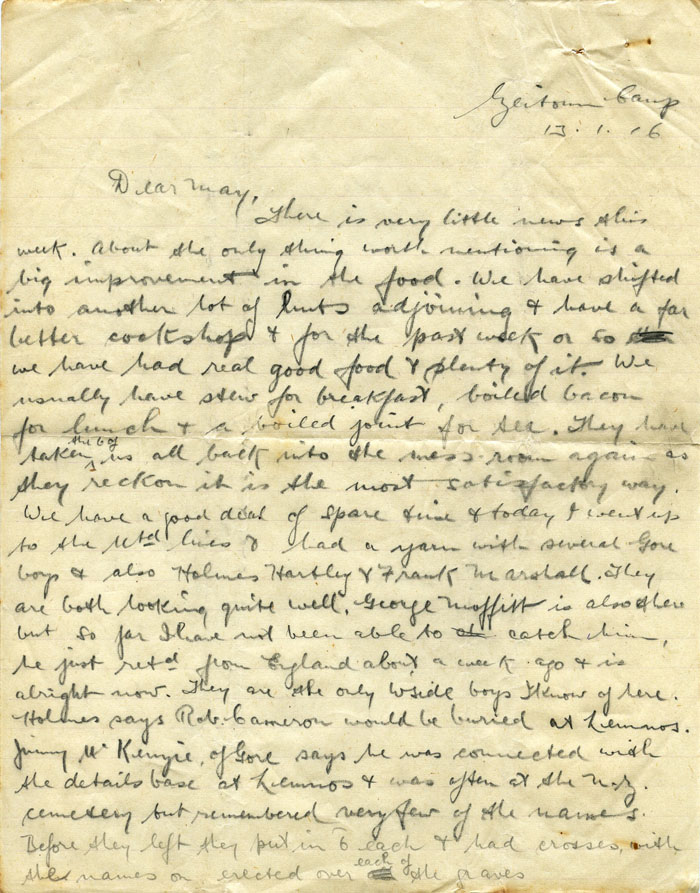 Zeitoun Camp
13.1.16
Dear May,
There is very little news this
week. About the only thing worth mentioning is a
big improvement in the food. We have shifted
into another lot of huts adjoining & have a far
better cookshop & for the past week or so
we have had real good food & plenty of it. We
usually have stew for breakfast, boiled bacon
for lunch & a boiled joint for tea. They have
taken the 6 of us all back into the mess room again as
they reckon it is the most satisfactory way.
We have a good deal of spare time & today I went up
to the Mtd lines & had a yarn with several Gore
boys & also Holmes Hartley & Frank Marshall. They
are both looking quite well. George Moffitt is also there
but so far I have not been able to catch him,
he just retd from England about a week ago & is
alright now. They are the only W'side boys I know of here.
Holmes says Rob. Cameron would be buried at Lemnos.
Jimmy McKenzie, of Gore says he was connected with
the details base at Lemnos & was often at the N.Z.
cemetery but remembered very few of the names.
Before they left they put in 6 each & had crosses, with
the names on erected over each of the graves